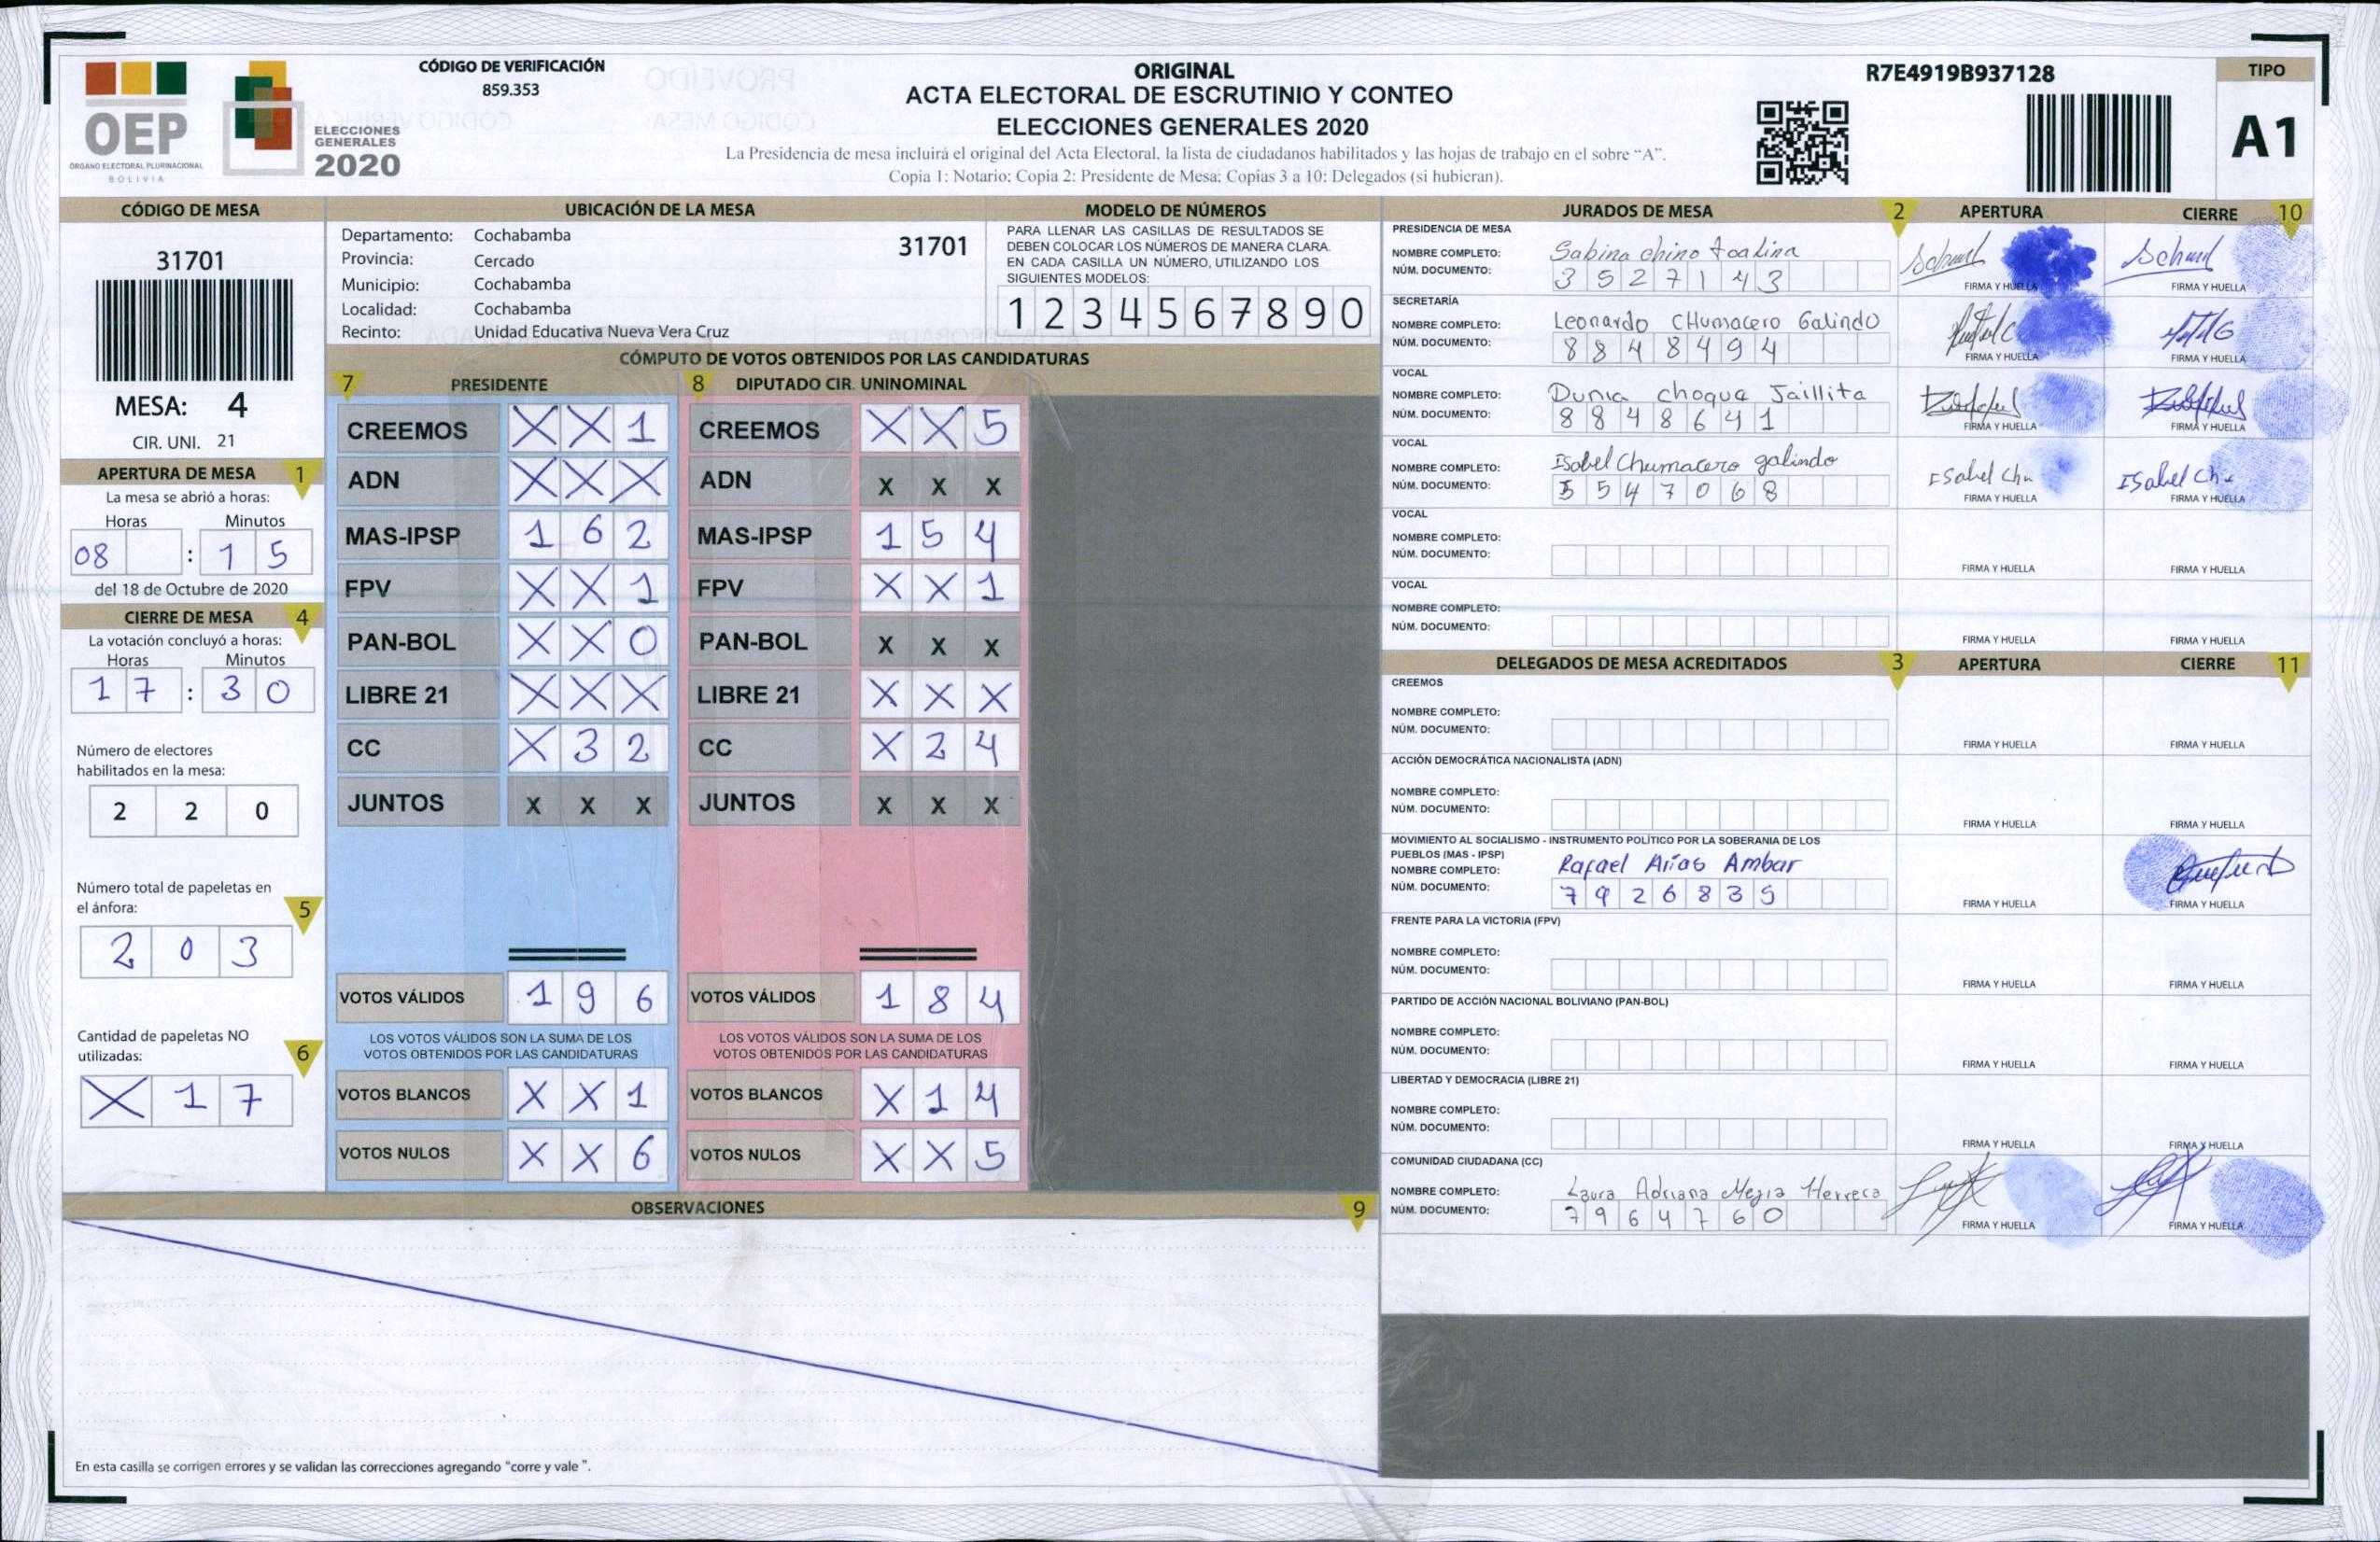 OEP
ORGANO ELECTORAL PLURINACIONAL
BOLIVIA
ELECCIONES
GENERALES
2020
CÓDIGO DE VERIFICACIÓN
859.353
ORIGINAL
ACTA ELECTORAL DE ESCRUTINIO Y CONTEO
ELECCIONES GENERALES 2020
La Presidencia de mesa incluirá el original del Acta Electoral, la lista de ciudadanos habilitados y las hojas de trabajo en el sobre “A”.
Copia 1: Notario; Copia 2: Presidente de Mesa; Copias 3 a 10: Delegados (si hubieran).
R7E4919B937128
TIPO
A1
CÓDIGO DE MESA
31701
MESA: 4
CIR. UNI. 21
APERTURA DE MESA 1
La mesa se abrió a horas:
Horas Minutos
08 : 1 5
del 18 de Octubre de 2020
CIERRE DE MESA 4
La votación concluyó a horas:
Horas Minutos
1 7 : 3 0
Número de electores
habilitados en la mesa:
2 2 0
Número total de papeletas en
el ánfora: 5
2 0 3
Cantidad de papeletas NO
utilizadas: 6
X 1 7
UBICACIÓN DE LA MESA
Departamento: Cochabamba 31701
Provincia: Cercado
Municipio: Cochabamba
Localidad: Cochabamba
Recinto: Unidad Educativa Nueva Vera Cruz
MODELO DE NÚMEROS
PARA LLENAR LAS CASILLAS DE RESULTADOS SE
DEBEN COLOCAR LOS NÚMEROS DE MANERA CLARA.
EN CADA CASILLA UN NÚMERO, UTILIZANDO LOS
SIGUIENTES MODELOS:
1 2 3 4 5 6 7 8 9 0
CÓMPUTO DE VOTOS OBTENIDOS POR LAS CANDIDATURAS
7 PRESIDENTE 8 DIPUTADO CIR. UNINOMINAL
CREEMOS X X 1 CREEMOS X X 5
ADN X X X ADN X X X
MAS-IPSP 1 6 2 MAS-IPSP 1 5 4
FPV X X 1 FPV X X 1
PAN-BOL X X 0 PAN-BOL X X X
LIBRE 21 X X X LIBRE 21 X X X
CC X 3 2 CC X 2 4
JUNTOS X X X JUNTOS X X X
VOTOS VÁLIDOS 1 9 6 VOTOS VÁLIDOS 1 8 4
LOS VOTOS VÁLIDOS SON LA SUMA DE LOS LOS VOTOS VÁLIDOS SON LA SUMA DE LOS
VOTOS OBTENIDOS POR LAS CANDIDATURAS VOTOS OBTENIDOS POR LAS CANDIDATURAS
VOTOS BLANCOS X X 1 VOTOS BLANCOS X 1 4
VOTOS NULOS X X 6 VOTOS NULOS X X 5
OBSERVACIONES 9
En esta casilla se corrigen errores y se validan las correcciones agregando "corre y vale ".
JURADOS DE MESA 2 APERTURA CIERRE 10
PRESIDENCIA DE MESA
NOMBRE COMPLETO: Sabina chino
NÚM. DOCUMENTO: 3 5 2 7 1 4 3
FIRMA Y HUELLA FIRMA Y HUELLA
SECRETARÍA
NOMBRE COMPLETO: Leonardo CHumacero Galindo
NÚM. DOCUMENTO: 8 8 4 8 4 9 4
FIRMA Y HUELLA FIRMA Y HUELLA
VOCAL
NOMBRE COMPLETO: Dunia choque Jaillita
NÚM. DOCUMENTO: 8 8 4 8 6 4 1
FIRMA Y HUELLA FIRMA Y HUELLA
VOCAL
NOMBRE COMPLETO: Isabel Chumacero galindo
NÚM. DOCUMENTO: 5 5 4 7 0 6 8
Isabel Chu Isabel Chu
FIRMA Y HUELLA FIRMA Y HUELLA
VOCAL
NOMBRE COMPLETO:
NÚM. DOCUMENTO:
FIRMA Y HUELLA FIRMA Y HUELLA
VOCAL
NOMBRE COMPLETO:
NÚM. DOCUMENTO:
FIRMA Y HUELLA FIRMA Y HUELLA
DELEGADOS DE MESA ACREDITADOS 3 APERTURA CIERRE 11
CREEMOS
NOMBRE COMPLETO:
NÚM. DOCUMENTO:
FIRMA Y HUELLA FIRMA Y HUELLA
ACCIÓN DEMOCRÁTICA NACIONALISTA (ADN)
NOMBRE COMPLETO:
NÚM. DOCUMENTO:
FIRMA Y HUELLA FIRMA Y HUELLA
MOVIMIENTO AL SOCIALISMO - INSTRUMENTO POLÍTICO POR LA SOBERANIA DE LOS
PUEBLOS (MAS - IPSP)
NOMBRE COMPLETO: Rafael Arias Ambar
NÚM. DOCUMENTO: 7 9 2 6 8 3 5
FIRMA Y HUELLA FIRMA Y HUELLA
FRENTE PARA LA VICTORIA (FPV)
NOMBRE COMPLETO:
NÚM. DOCUMENTO:
FIRMA Y HUELLA FIRMA Y HUELLA
PARTIDO DE ACCIÓN NACIONAL BOLIVIANO (PAN-BOL)
NOMBRE COMPLETO:
NÚM. DOCUMENTO:
FIRMA Y HUELLA FIRMA Y HUELLA
LIBERTAD Y DEMOCRACIA (LIBRE 21)
NOMBRE COMPLETO:
NÚM. DOCUMENTO:
FIRMA Y HUELLA FIRMA Y HUELLA
COMUNIDAD CIUDADANA (CC)
NOMBRE COMPLETO: Laura Adriana Mejia Herrera
NÚM. DOCUMENTO: 7 9 6 4 7 6 0
FIRMA Y HUELLA FIRMA Y HUELLA